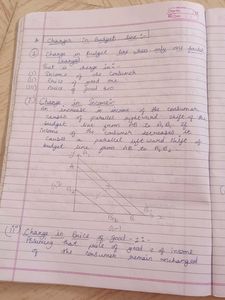 * Changes In Budget line :-
① Change in Budget line when only one factor changes
That is change in :-
(i) Income of the consumer
(ii) Price of good one
(iii) Price of good two
(i) Change in Income:-
An increase in income of the consumer
causes a parallel rightward shift of the
budget line from AB to A1 B1. If
income of the consumer decreases it
causes a parallel leftward shift of
budget line from AB to A2 B2.
A1
A
A2
B2 B B1
(ii) Change in Price of Good - 1 :-
Assuming that price of good 2 & income
of the consumer remain unchanged